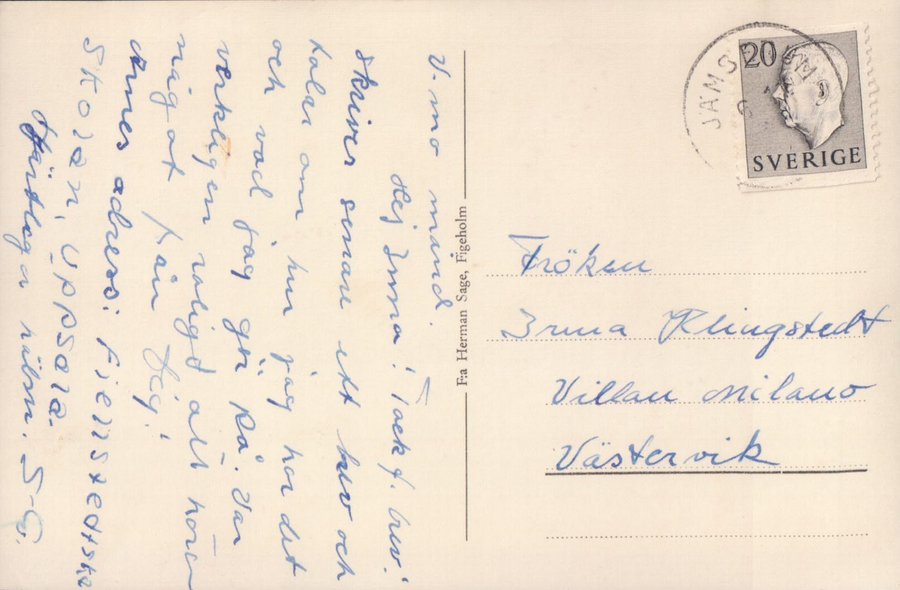 V.mo månd.
Hej Irma! Tack f. brev!
Skriver senare ett brev och
talar om hur jag har det
och vad jag gör på. Var
verkligen roligt att höra
något från Dig!
Arnes adress: Fjellstedtska
skolan, Uppsala.
Hjärtliga hälsn. S-G.
F:a Herman Sage, Figeholm
20
SVERIGE
Fröken
Irma Klingstedt
Villan Milano
Västervik